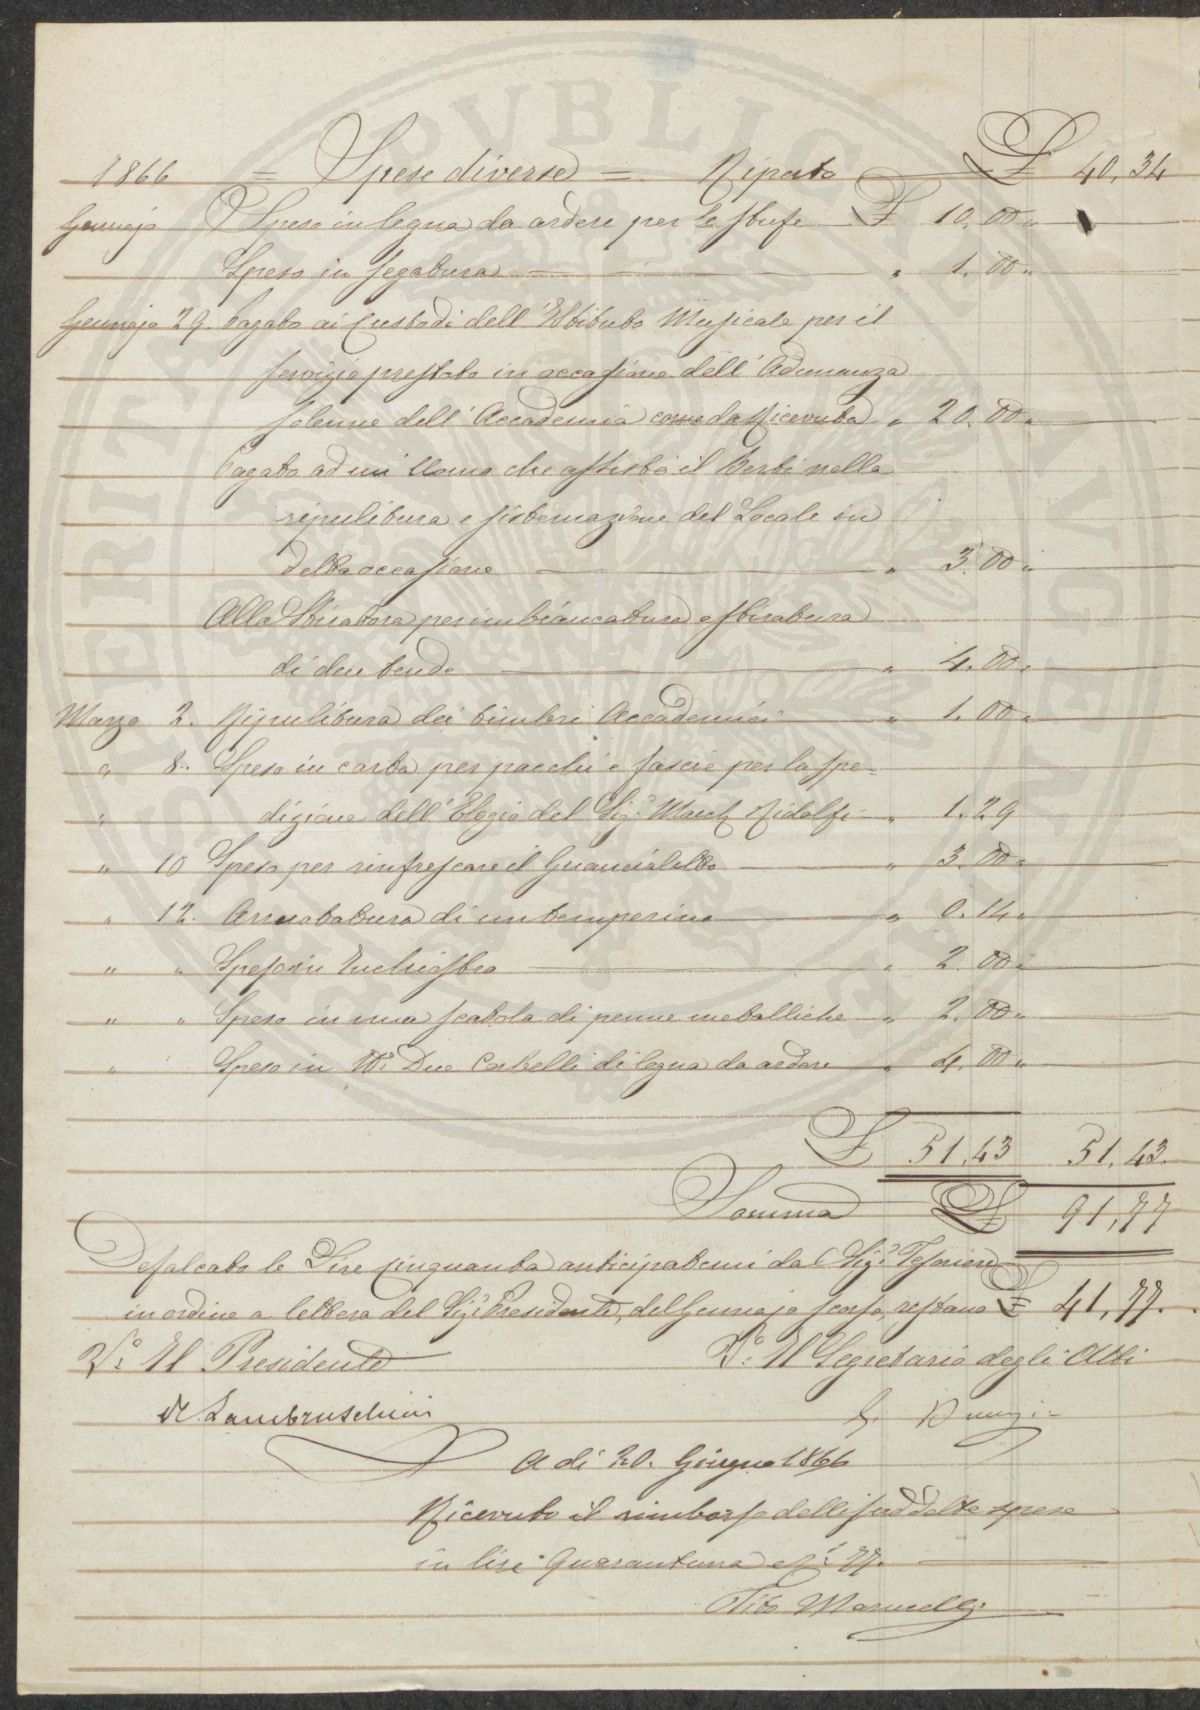 1866 = Spese diverse = Riporto £ 40,34
Gennajo Speso in legna da ardere per le stufe £ 10.00 "
Speso in segatura " 1.00 "
Gennajo 29. Pagato ai Custodi dell'Istituto Musicale per il
servizio prestato in occasione dell'Adunanza
solenne dell'Accademia come da Ricevuta " 20.00 "
Pagato ad un Uomo che assistè il Berti nella
ripulitura e sistemazione del Locale in
detta occasione " 3.00 "
Alla Stiratora per imbiancatura e stiratura
di due tende " 4.00 "
Marzo 2. Ripulitura dei timbri Accademici " 1.00 "
" 8. Speso in carta per pacchi e fascie per la spe-
" dizione dell'Elogio del Sig.r March. Ridolfi " 1.29
" 10 Speso per rinfrescare il Guancialetto " 3.00 "
" 12. Arruotatura di un temperino " 0.14 "
" " Speso in Inchiostro " 2.00 "
" " Speso in una scatola di penne metalliche " 2.00 "
" Speso in N.o Due Corbelli di legna da ardere " 4.00 "
£ 51,43 51,43.
Somma £ 91,77
Defalcato le Lire cinquanta anticipatemi dal Sig.r Tesoriere
in ordine a lettera del Sig.r Presidente, del Gennajo scorso, restano £ 41,77.
V.o Il Presidente V.o Il Segretario degli Atti
R. Lambruschini
A dì 20. Giugno 1866
Ricevuto il rimborso delli suddette spese
in lire Quarantuna e c.i 77.
Tito Marucelli
PVBLICA